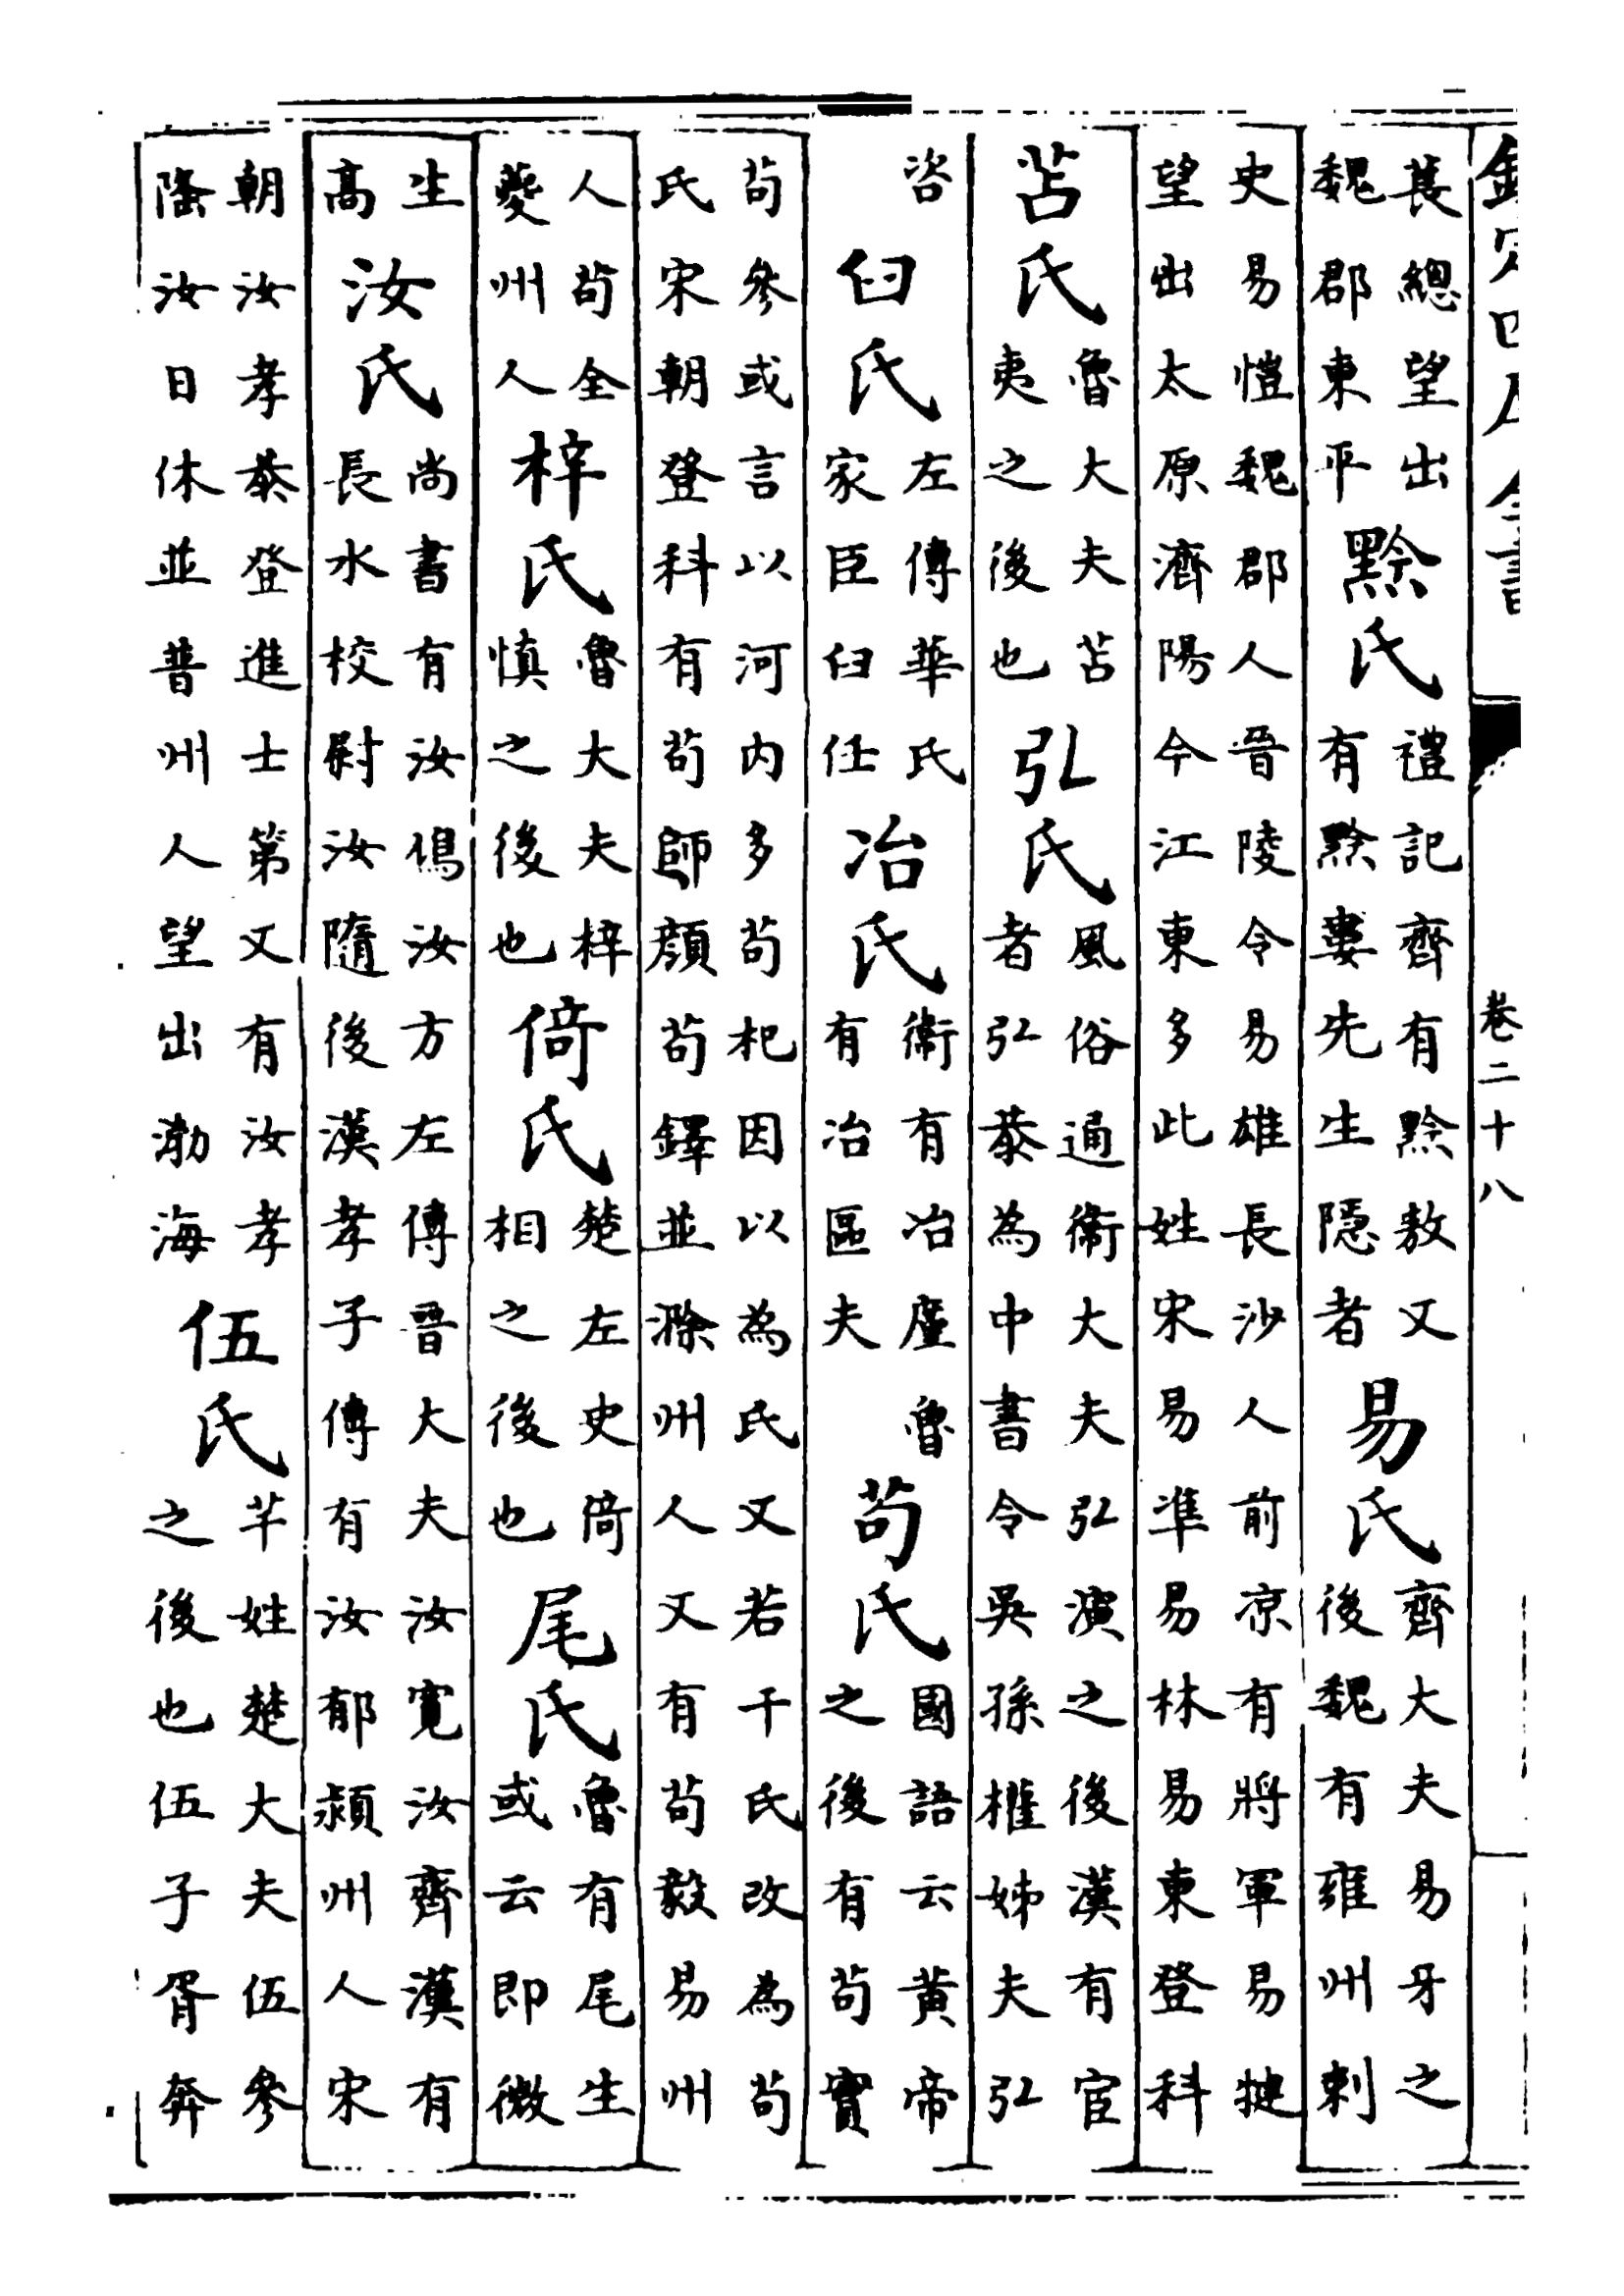 欽定四庫全書 卷二十八
萇總望出魏郡東平黔氏禮記齊有黔敖又有黔婁先生隱者易氏齊大夫易牙之後魏有雍州刺
史易愷魏郡人晉陵令易雄長沙人前凉有將軍易揵望出太原濟陽今江東多此姓宋易準易林易東登科
苫氏魯大夫苫夷之後也弘氏風俗通衞大夫弘演之後漢有宦者弘恭為中書令吳孫權姊夫弘
咨臼氏左傳華氏家臣臼任冶氏衞有冶廑魯有冶區夫苟氏國語云黃帝之後有苟實
苟參或言以河内多苟杞因以為氏又若干氏改為苟氏宋朝登科有苟師顔苟鐸並滁州人又有苟毅易州
人苟全夔州人梓氏魯大夫梓慎之後也倚氏楚左史倚相之後也尾氏魯有尾生或云即微
生高汝氏尚書有汝鳩汝方左傳晉大夫汝寛汝齊漢有長水校尉汝隨後漢孝子傳有汝郁潁州人宋
朝汝孝恭登進士第又有汝孝隆汝日休並普州人望出渤海伍氏芊姓楚大夫伍參之後也伍子胥奔